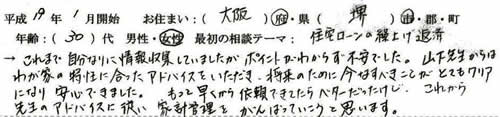 平成19年1月開始 お住まい:(大阪)府・県(堺)市・郡・町
年齢:(30)代 男性・女性 最初の相談テーマ: 住宅ローンの繰上げ返済
→ これまで自分なりに情報収集していましたがポイントがわからず不安でした。山下先生からは
わが家の特性に合ったアドバイスをいただき、将来のために今なすべきことがとてもクリア
になり安心できました。 もっと早くから依頼できてたらベターだったけど、これから
先生のアドバイスに従い家計管理をがんばっていこうと思います。